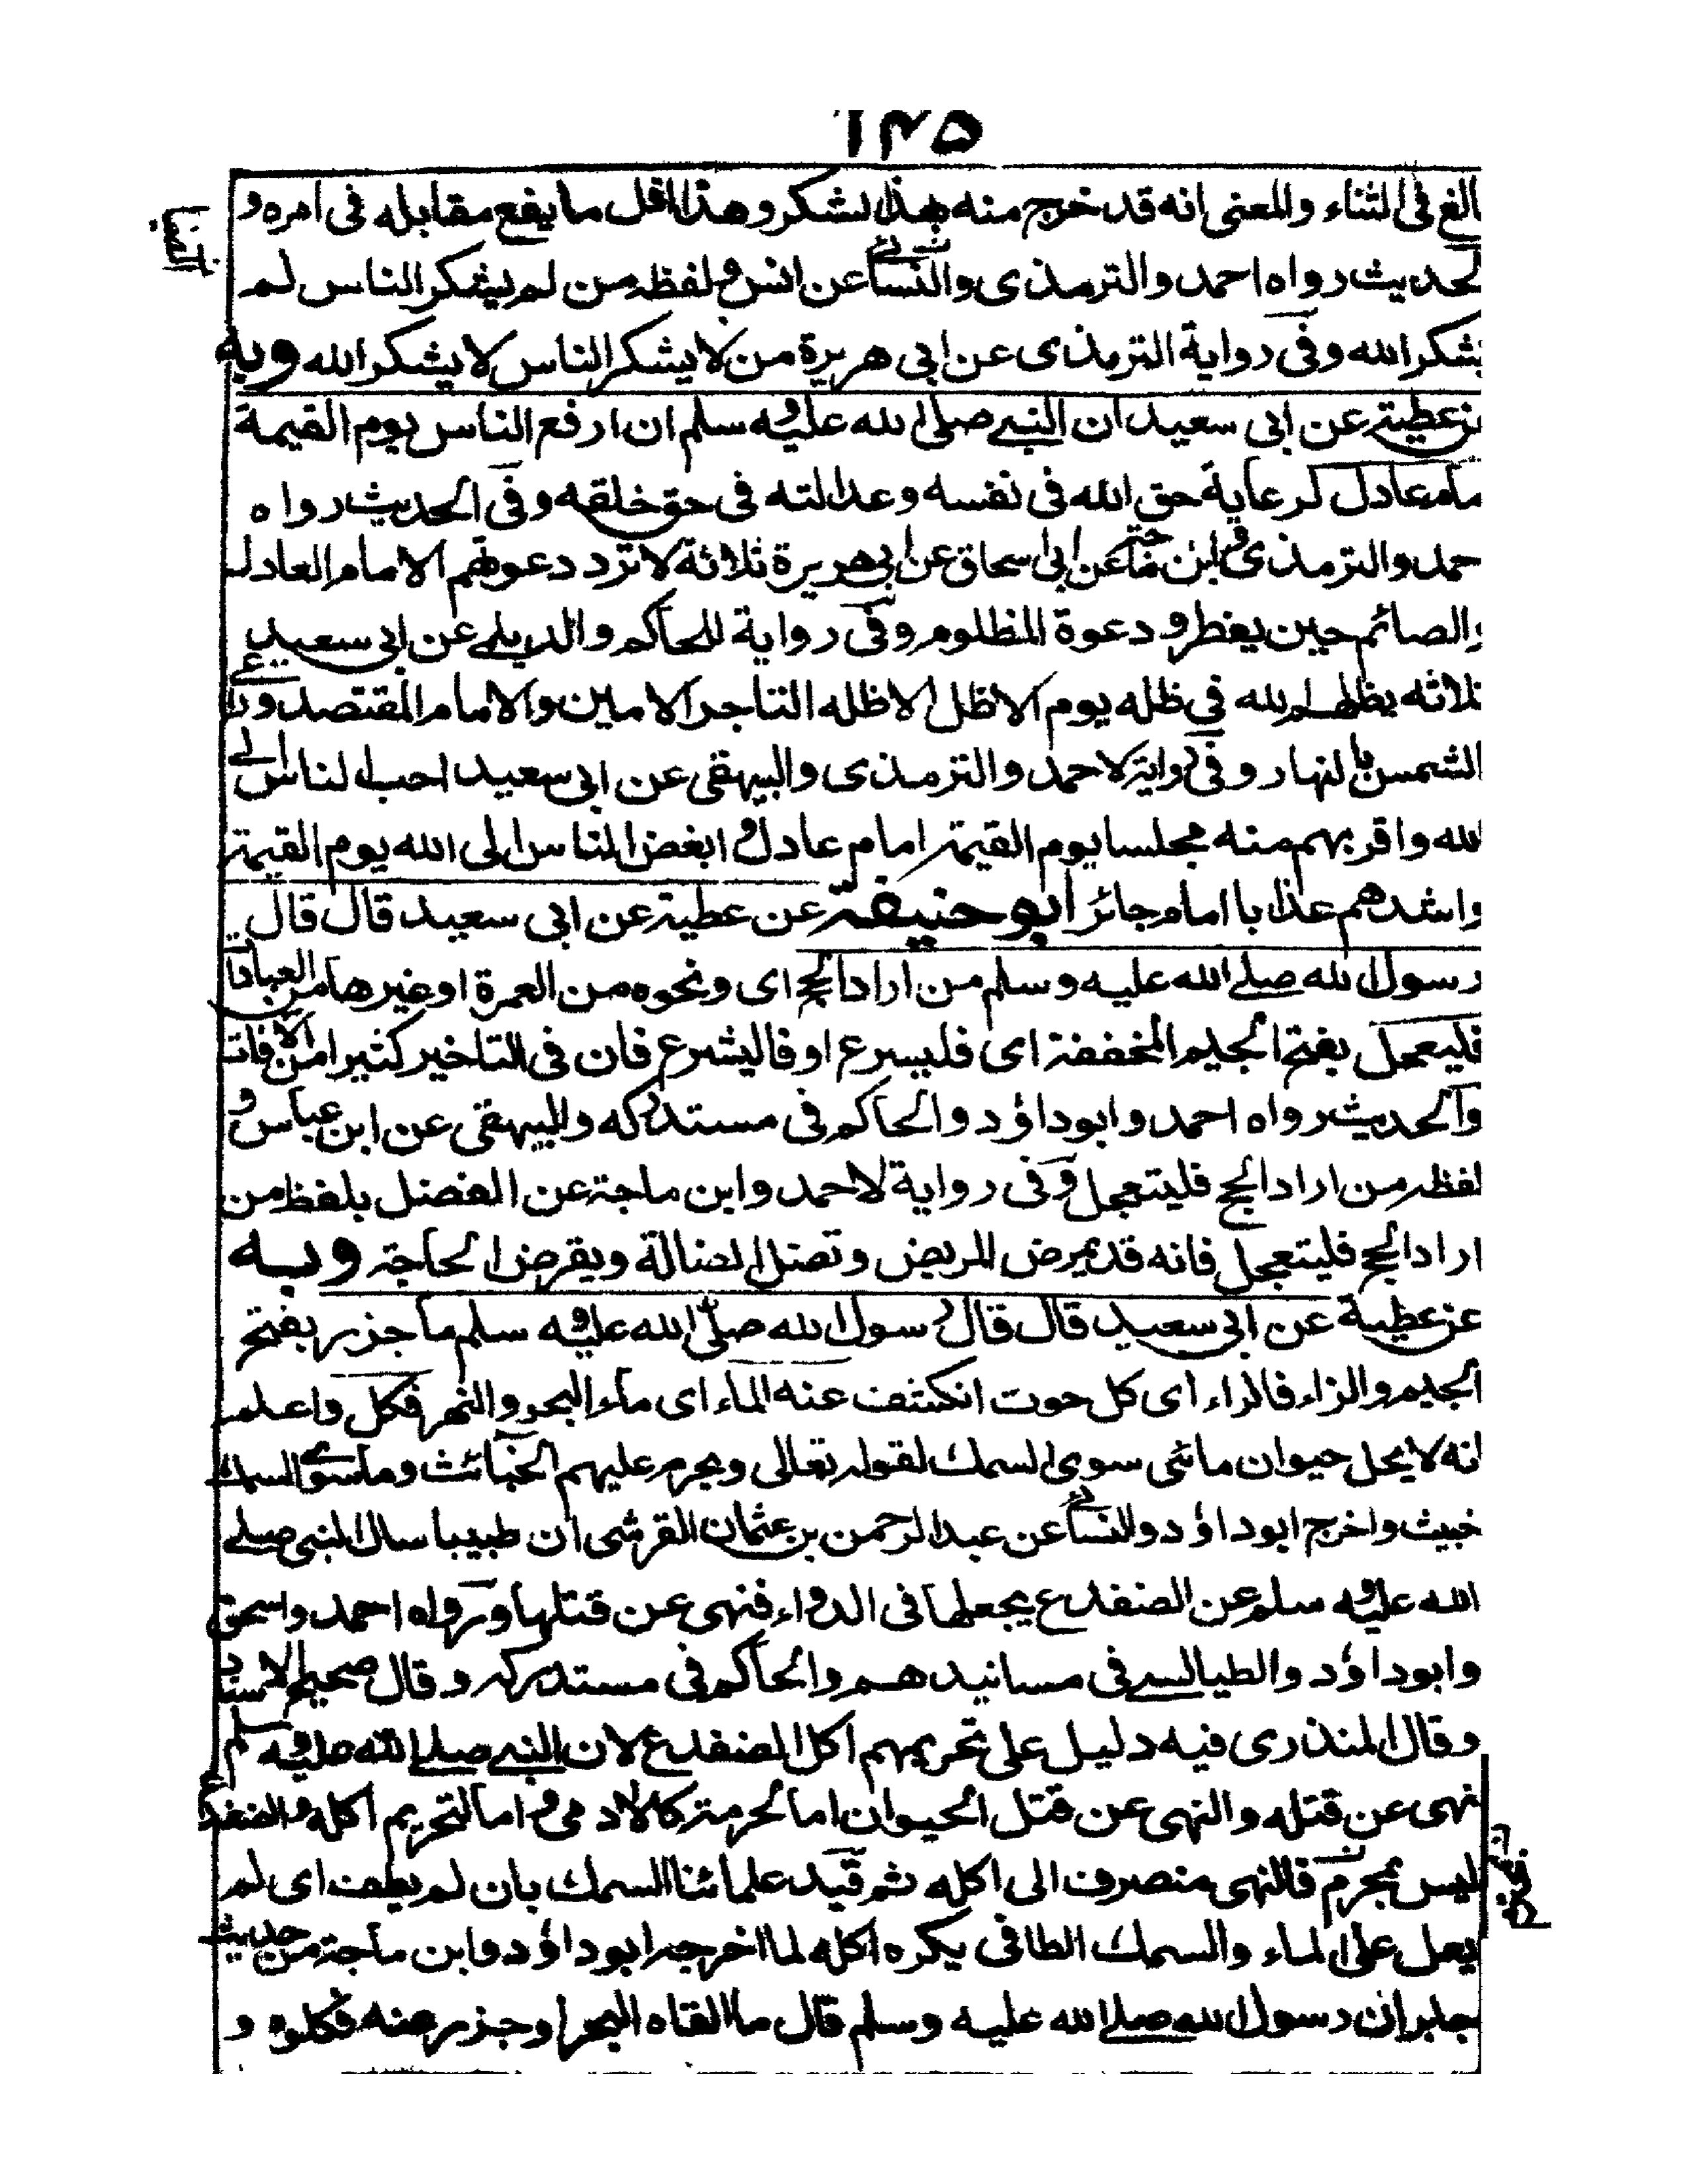 ١٣٥
الغ فى الثناء والمعنى انه قد خرج منه بهذا الشكر وهذا اقل ما يقع مقابله فى امره و
لحديث رواه احمد والترمذى والنسائى عن انس ولفظه من لم يشكر الناس لم
يشكر الله وفى رواية الترمذى عن ابى هريرة من لا يشكر الناس لا يشكر الله وبه
عن عطية عن ابى سعيد ان النبى صلى الله عليه وسلم ان ارفع الناس يوم القيمة
مام عادل لرعاية حق الله فى نفسه وعدالته فى حق خلقه وفى الحديث رواه
حمد والترمذى وابن ماجة عن ابى اسحاق عن ابى هريرة ثلاثة لا ترد دعوتهم الامام العادل
والصائم حين يفطر ودعوة المظلوم وفى رواية للحاكم والديلمى عن ابى سعيد
ثلاثه يظلهم الله في ظله يوم لا ظل الا ظله التاجر الامين والامام المقتصد وراعى
الشمس بالنهار وفى رواية لاحمد والترمذى والبيهقى عن ابى سعيد احب الناس الى
لله واقربهم منه مجلسا يوم القيمة امام عادل وابغض الناس الى الله يوم القيمة
واشدهم عذابا امام جائر ابو حنيفة عن عطية عن ابى سعيد قال قال
رسول الله صلى الله عليه وسلم من اراد الحج اى ونحوه من العمرة او غيرها من العبادات
فليعجل بفتح الجيم المخففة اى فليسرع او فاليشرع فان فى التاخير كثيرا من الافات
والحديث رواه احمد وابو داؤد والحاكم فى مستدركه والبيهقى عن ابن عباس و
لفظه من اراد الحج فليتعجل وفى رواية لاحمد وابن ماجة عن الفضل بلفظ من
اراد الحج فليتعجل فانه قد يمرض المريض وتضل الضالة ويقرض الحاجة وبه
عن عطية عن ابى سعيد قال قال رسول الله صلى الله عليه وسلم ما جزر بفتح
الجيم والزاء فالراء اى كل حوت انكشف عنه الماء اى ماء البحر والنهر فكل واعلم
انه لا يحل حيوان مائى سوى السمك لقوله تعالى ويحرم عليهم الخبائث وما سوى السمك
خبيث واخرج ابو داؤد والنسائى عن عبد الرحمن بن عثمان القرشى ان طبيبا سال النبى صلى
الله عليه وسلم عن الضفدع يجعلها فى الدواء فنهى عن قتلها ورواه احمد واسحق
وابو داؤد والطيالسى فى مسانيدهم والحاكم فى مستدركه وقال صحيح الاسناد
وقال المنذرى فيه دليل على تحريم اكل الضفدع لان النبى صلى الله عليه وسلم
نهى عن قتله والنهى عن قتل الحيوان اما لحرمته كالادمى واما لتحريم اكله والضفدع
ليس بمحرم فالنهى منصرف الى اكله ثم قيد علمائنا السمك بان لم يطف اى لم
يعل على الماء والسمك الطافى يكره اكله لما اخرجه ابو داؤد وابن ماجة من حديث
جابر ان رسول الله صلى الله عليه وسلم قال ما القاه البحر او جزر عنه فكلوه و